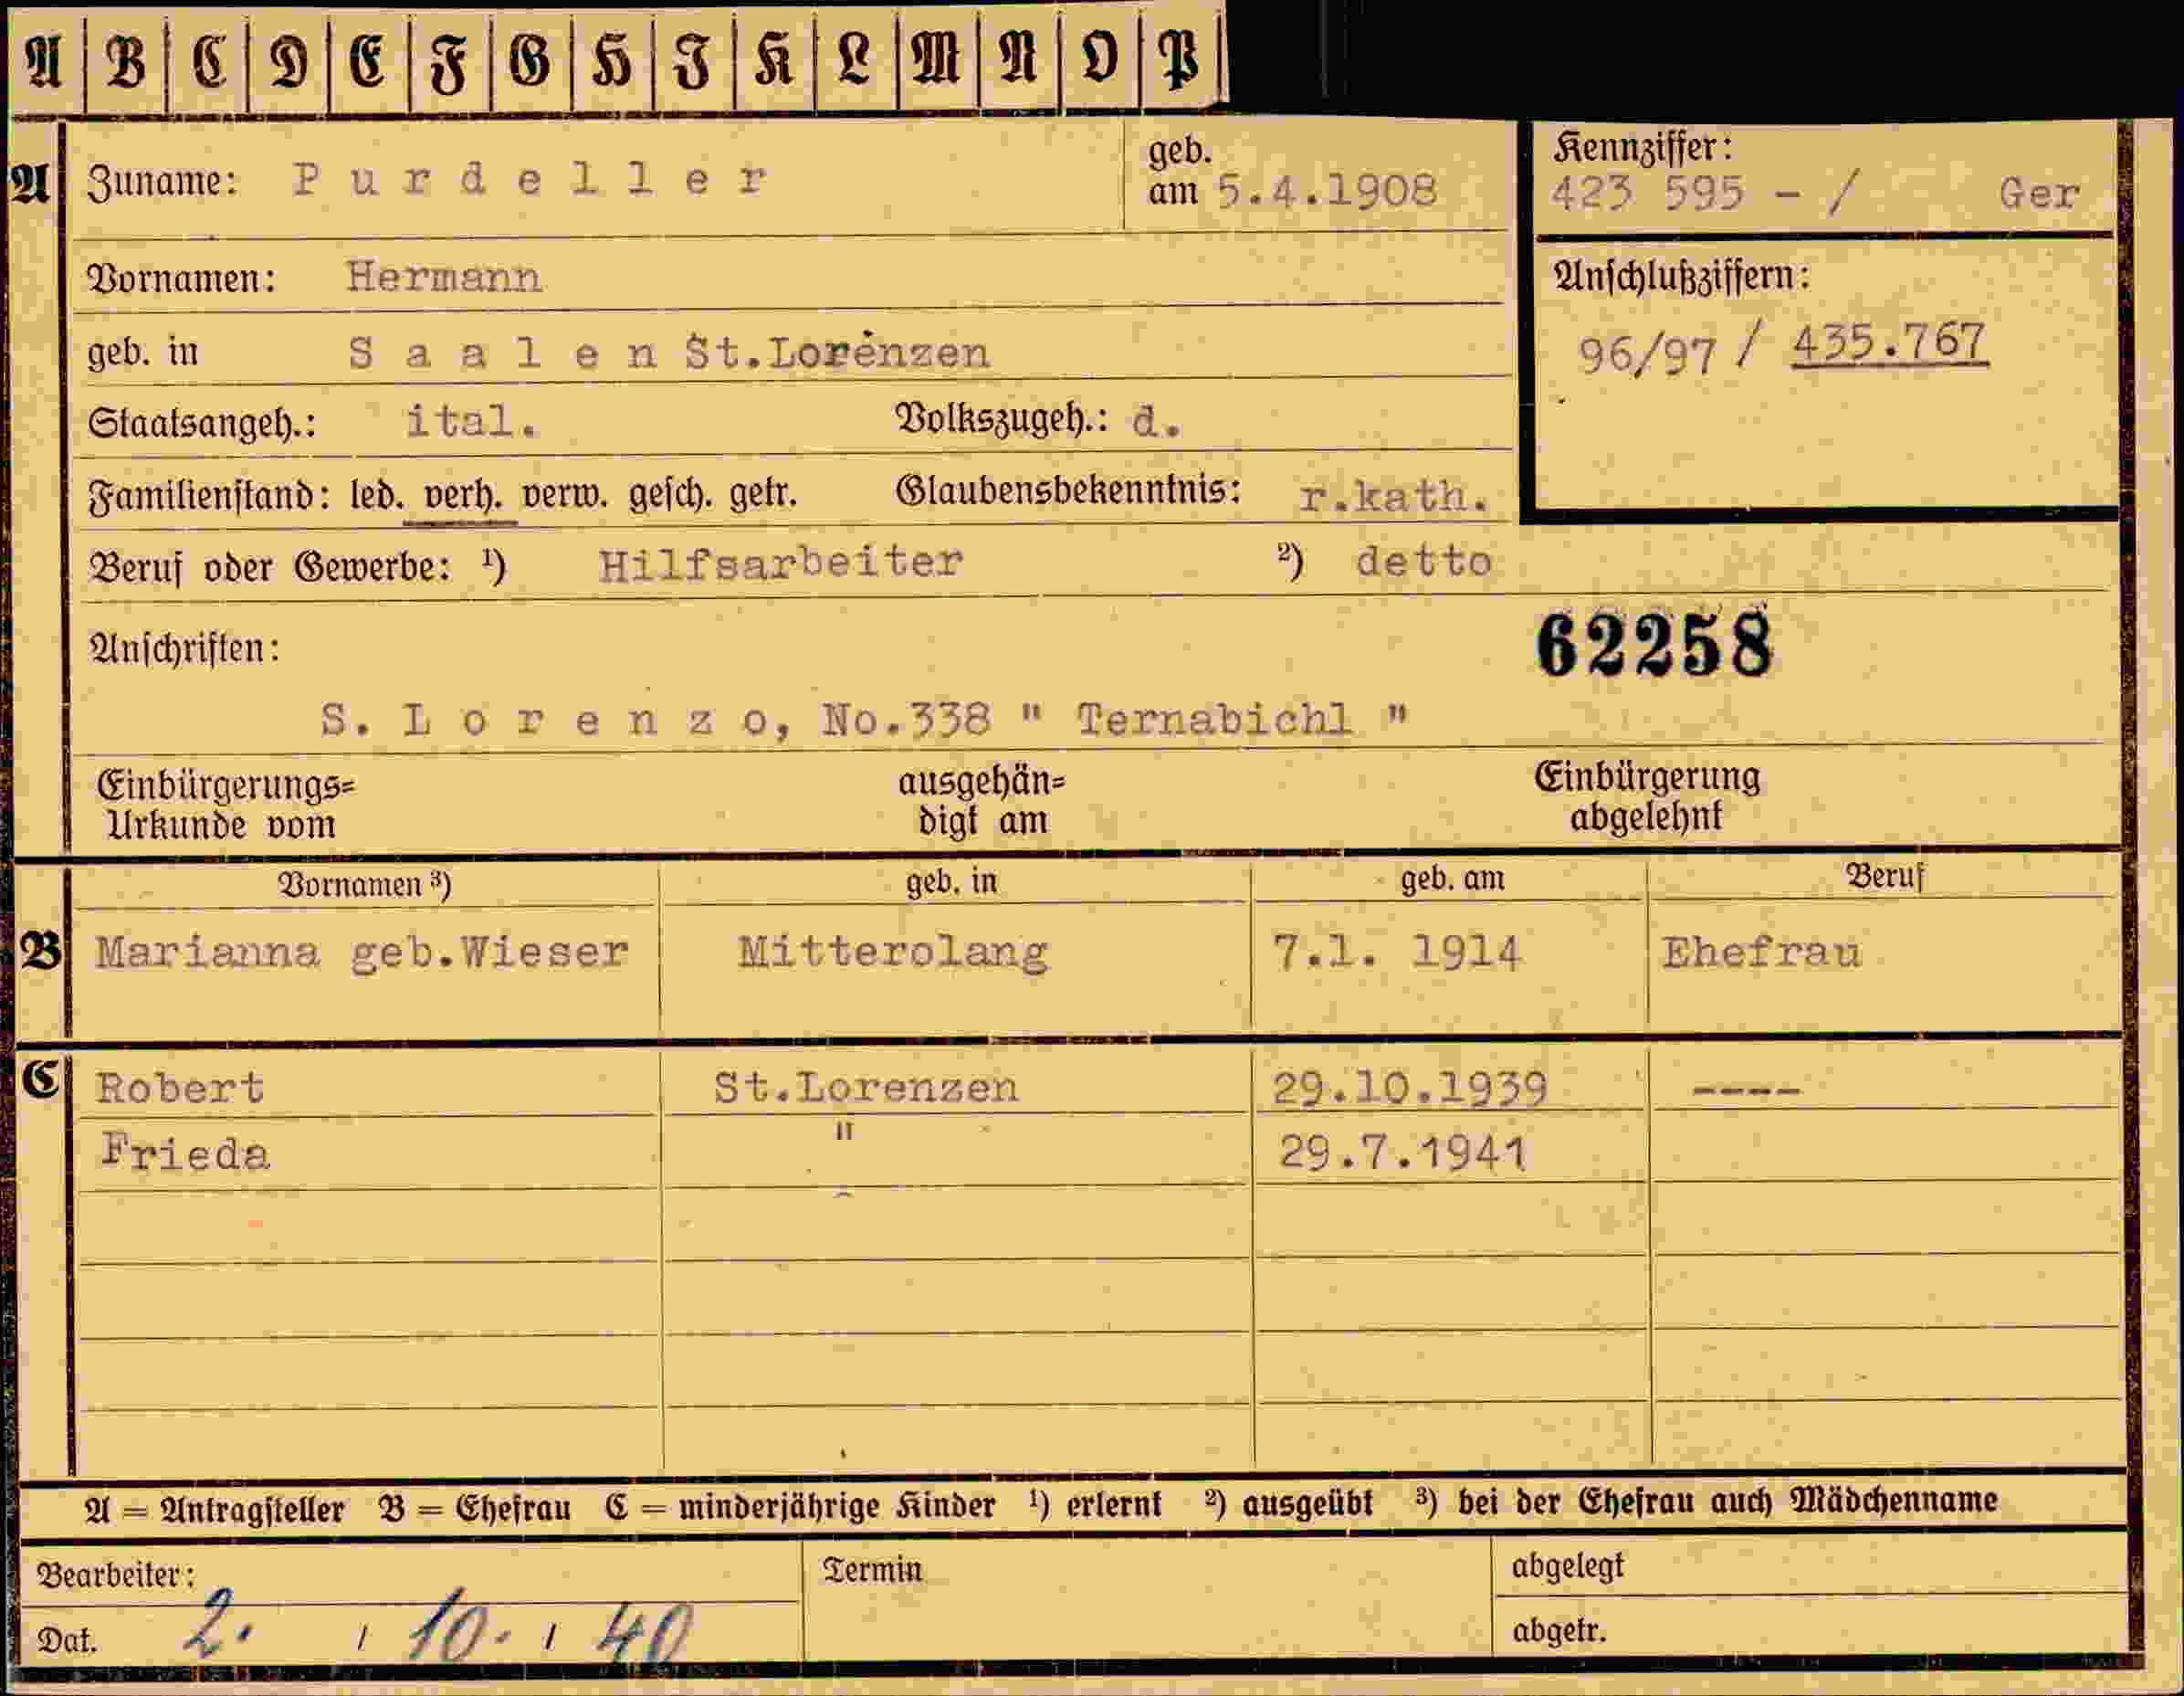 A B C D E F G H I K L M N O P
A Zuname: Purdeller geb. am 5.4.1908
Kennziffer:
423 595 - / Ger
Vornamen: Hermann
Anschlußziffern:
geb. in Saalen St.Lorenzen
96/97 / 435.767
Staatsangeh.: ital. Volkszugeh.: d.
Familienstand: led. verh. verw. gesch. getr. Glaubensbekenntnis: r.kath.
Beruf oder Gewerbe: ¹) Hilfsarbeiter ²) detto
Anschriften:
62258
S. Lorenzo, No.338 " Ternabichl "
Einbürgerungs= ausgehän= Einbürgerung
Urkunde vom digt am abgelehnt
Vornamen ³) geb. in geb. am Beruf
B Marianna geb.Wieser Mitterolang 7.1. 1914 Ehefrau
C Robert St.Lorenzen 29.10.1939 ----
Frieda " 29.7.1941
A = Antragsteller B = Ehefrau C = minderjährige Kinder ¹) erlernt ²) ausgeübt ³) bei der Ehefrau auch Mädchenname
Bearbeiter: Termin abgelegt
Dat. 2. / 10. / 40 abgetr.